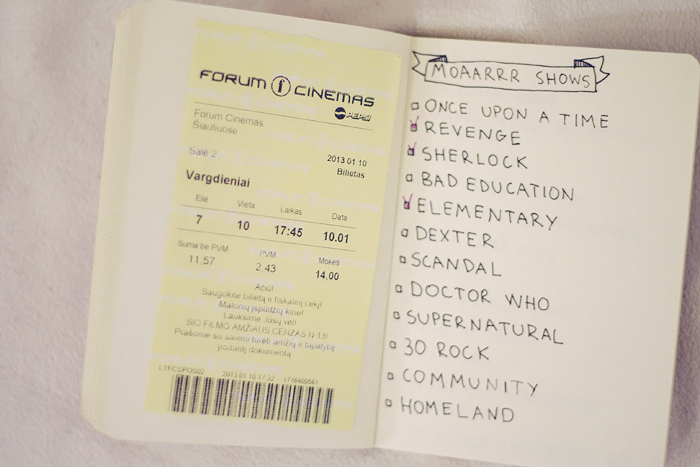 FORUM CINEMAS
PEPSI
Forum Cinemas
Šiauliuose
Salė 2
2013 01 10
Bilietas
Vargdieniai
Eilė Vieta Laikas Data
7 10 17:45 10.01
Suma be PVM PVM Mokėti
11,57 2,43 14,00
Ačiū!
Saugokite bilietą ir fiskalinį čekį!
Malonių įspūdžių kine!
Lauksime Jūsų vėl!
ŠIO FILMO AMŽIAUS CENZAS N-13!
Prašome su savimi turėti amžių ir tapatybę
liudijantį dokumentą
2013 01 10 17:32
MOAARRR SHOWS
ONCE UPON A TIME
REVENGE
SHERLOCK
BAD EDUCATION
ELEMENTARY
DEXTER
SCANDAL
DOCTOR WHO
SUPERNATURAL
30 ROCK
COMMUNITY
HOMELAND